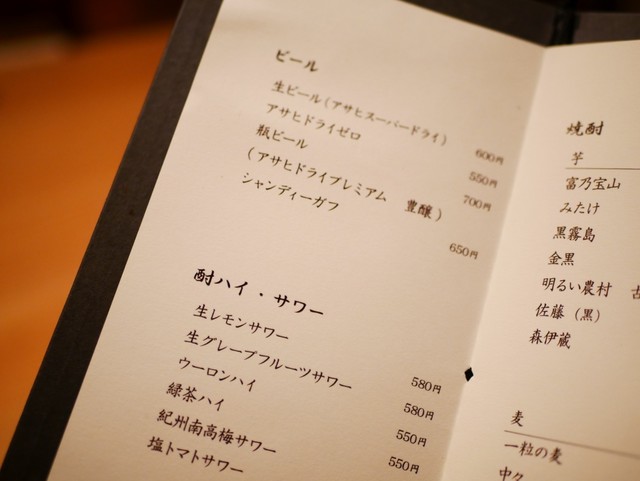 ビール
生ビール(アサヒスーパードライ) 600円
アサヒドライゼロ 550円
瓶ビール 700円
(アサヒドライプレミアム 豊醸)
シャンディーガフ 650円
酎ハイ・サワー
生レモンサワー 580円
生グレープフルーツサワー 580円
ウーロンハイ 550円
緑茶ハイ 550円
紀州南高梅サワー
塩トマトサワー
焼酎
芋
富乃宝山
みたけ
黒霧島
金黒
明るい農村
佐藤(黒)
森伊蔵
麦
一粒の麦